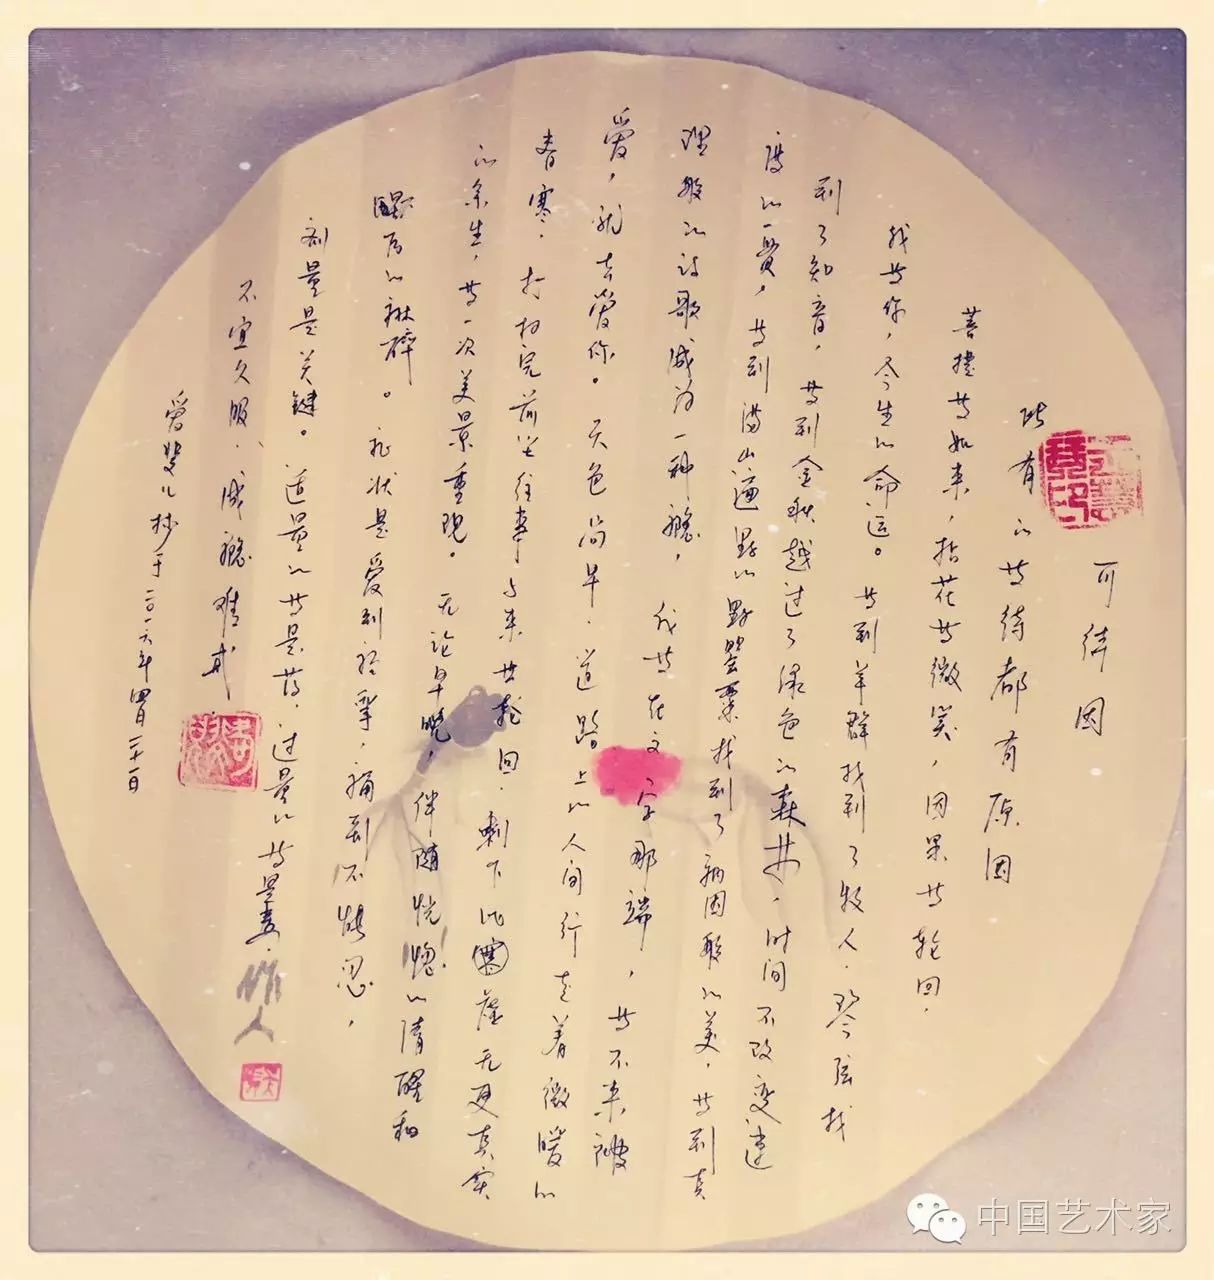 可待因
所有的等待都有原因
菩提等如来，拈花等微笑，因果等轮回，
找等你，今生的命运。等到羊群找到了牧人，琴弦找
到了知音，等到金秋越过了绿色的森林，时间不改变速
度的一贯，等到满山遍野的野罂粟找到了病因般的美，等到真
理般的诗歌成为一种瘾，我等在文字那端，等不来被
爱，就去爱你。天色尚早，道路上的人间行走着微暖的
春寒，打扫完前尘往事与来世轮回，剩下比虚无更真实
的余生，等一次美景重现。无论早晚，伴随恍惚的清醒和
醒后的麻醉。症状是爱到拾掇，痛到不能忍，
剂量是关键。适量的等是药，过量的等是毒，
不宜久服，成瘾难戒
爱斐儿抄于二〇一六年四月二十一日
中国艺术家